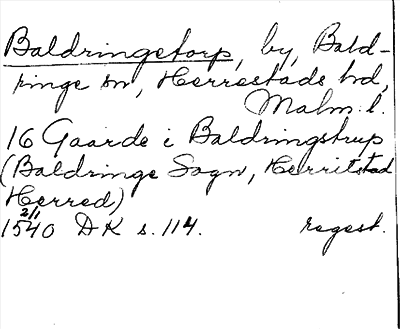 Baldringetorp, by, Bald-
ringe sn, Herrestads hd,
Malm. l.
16 Gaarde i Baldringstrup
(Baldringe Sogn, Herritstad
Herred)
2/1
1540 DK s. 114. regest.